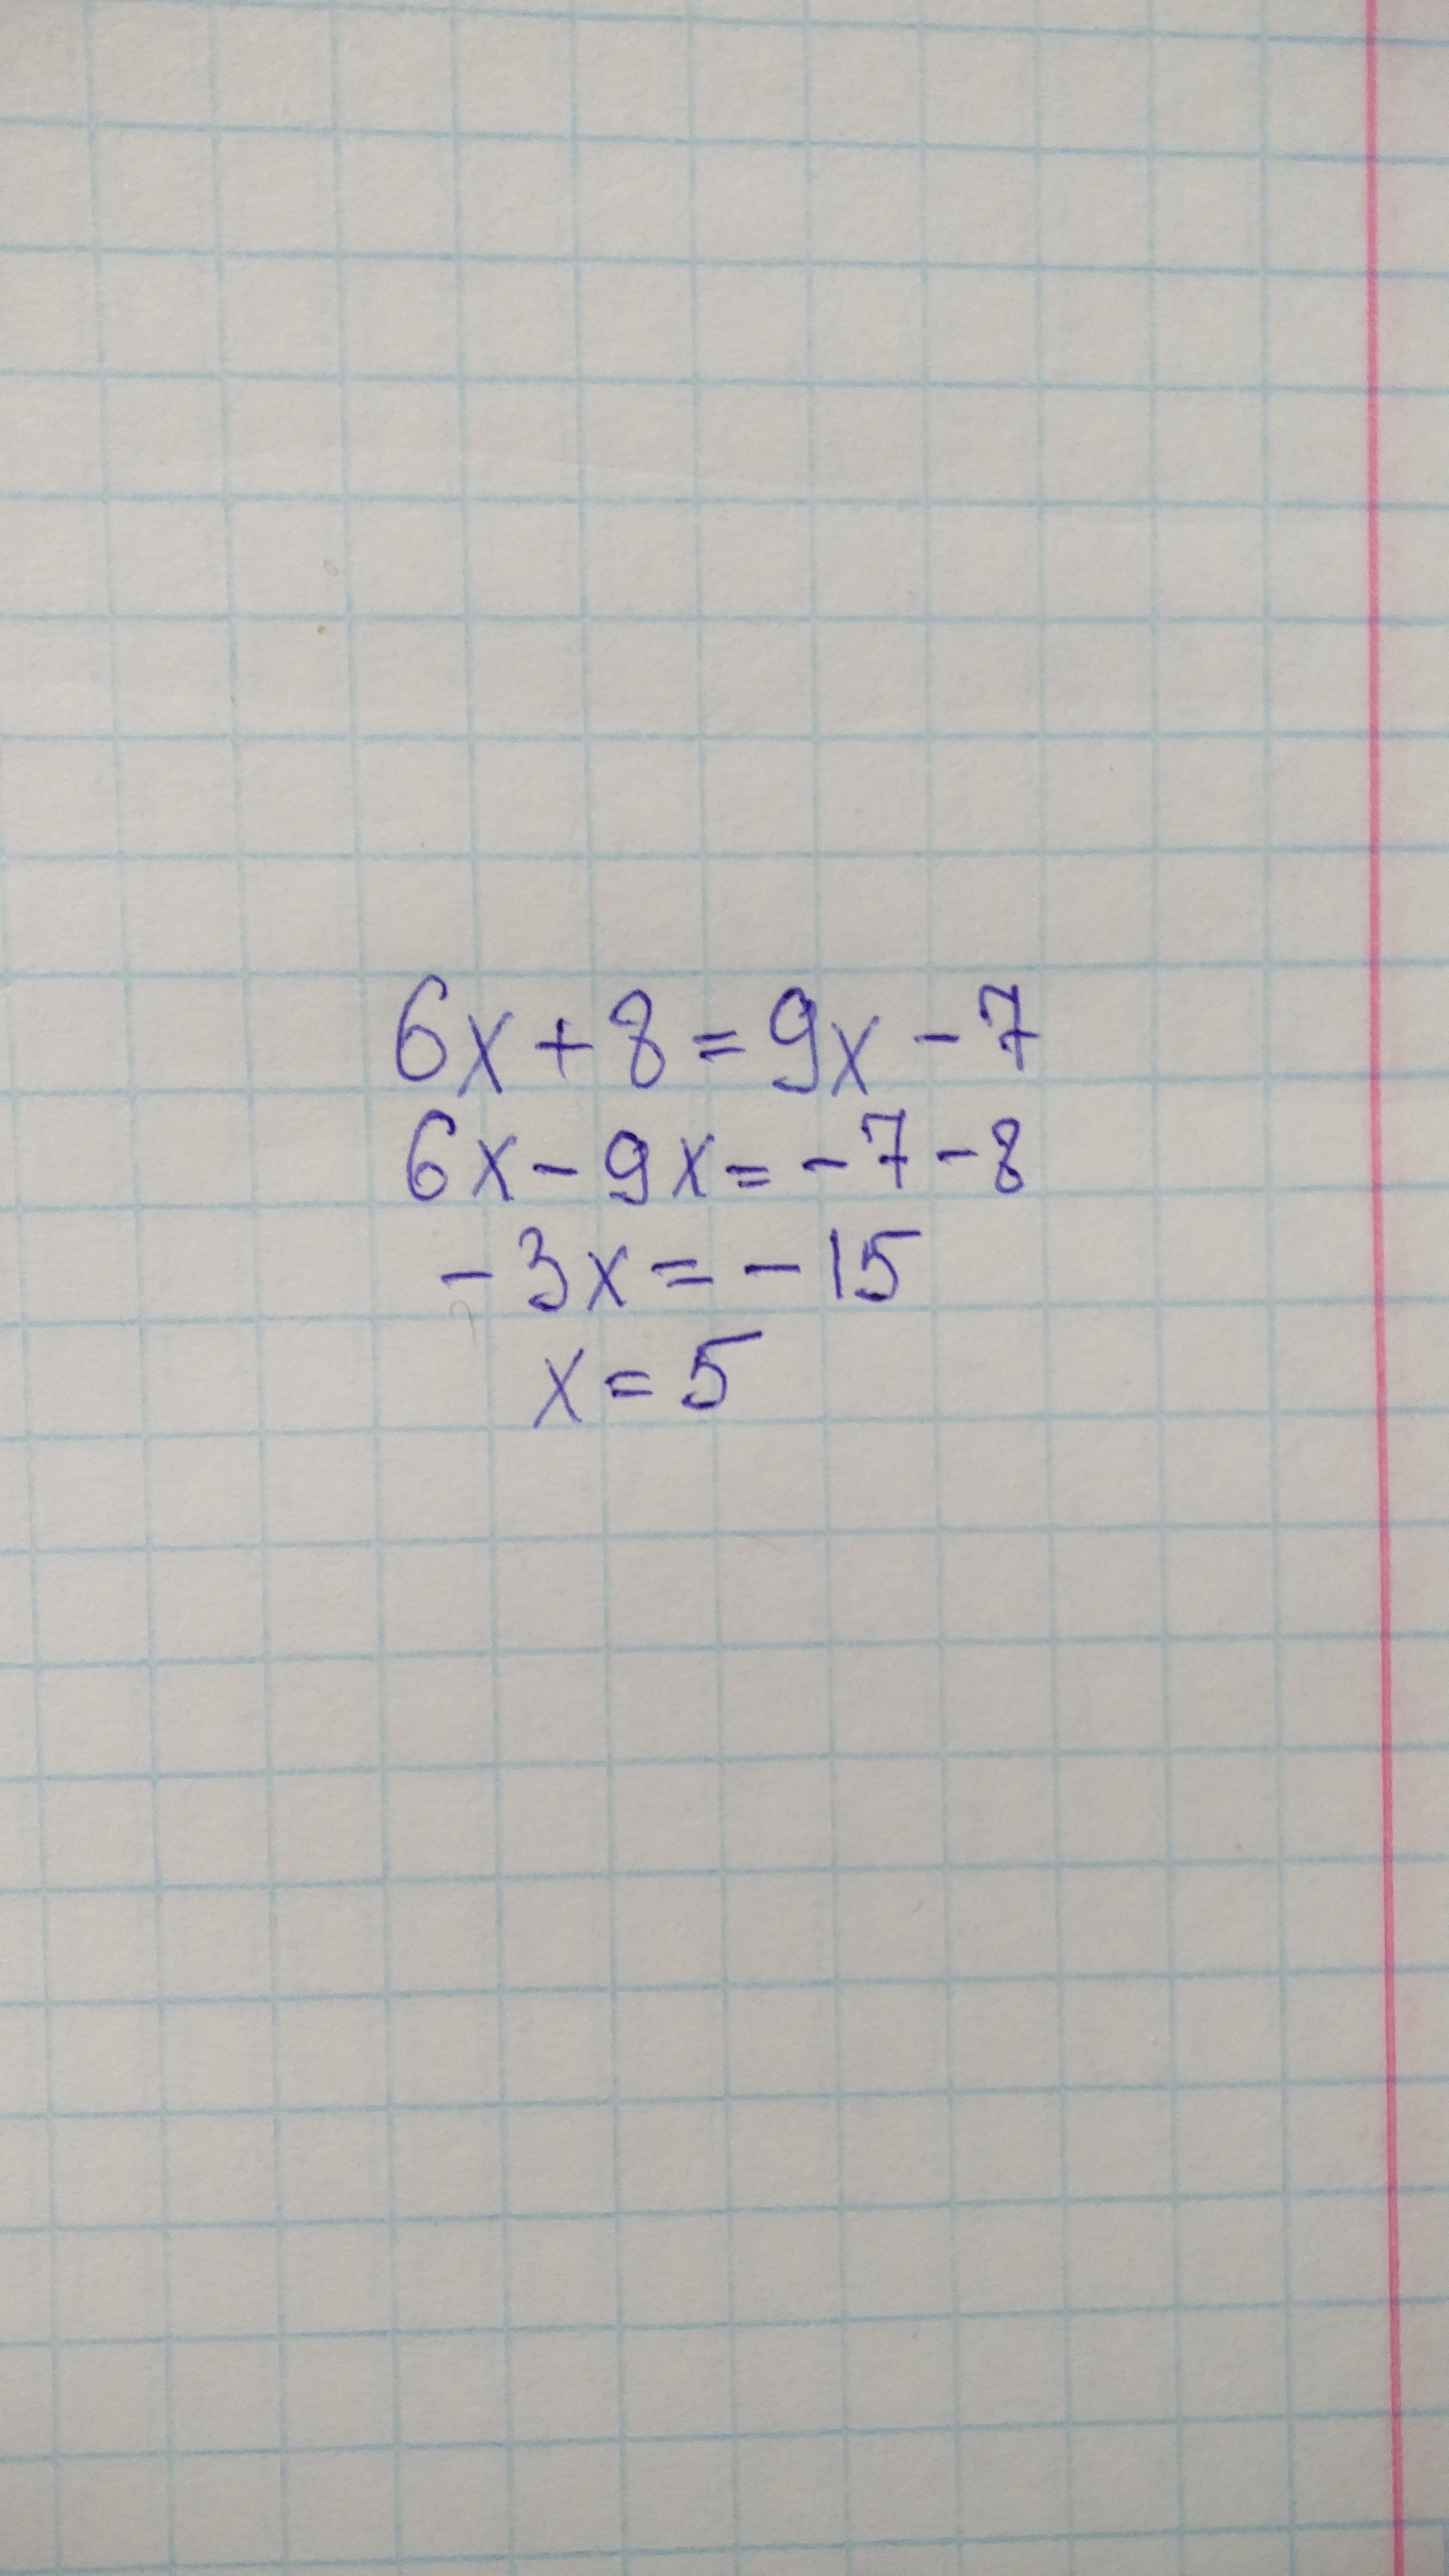 6x + 8 = 9x - 7
6x - 9x = -7 - 8
-3x = -15
x = 5